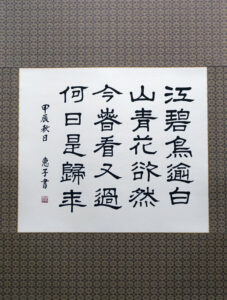 江碧鳥逾白
山青花欲然
今春看又過
何日是歸年
甲辰秋日 惠子書